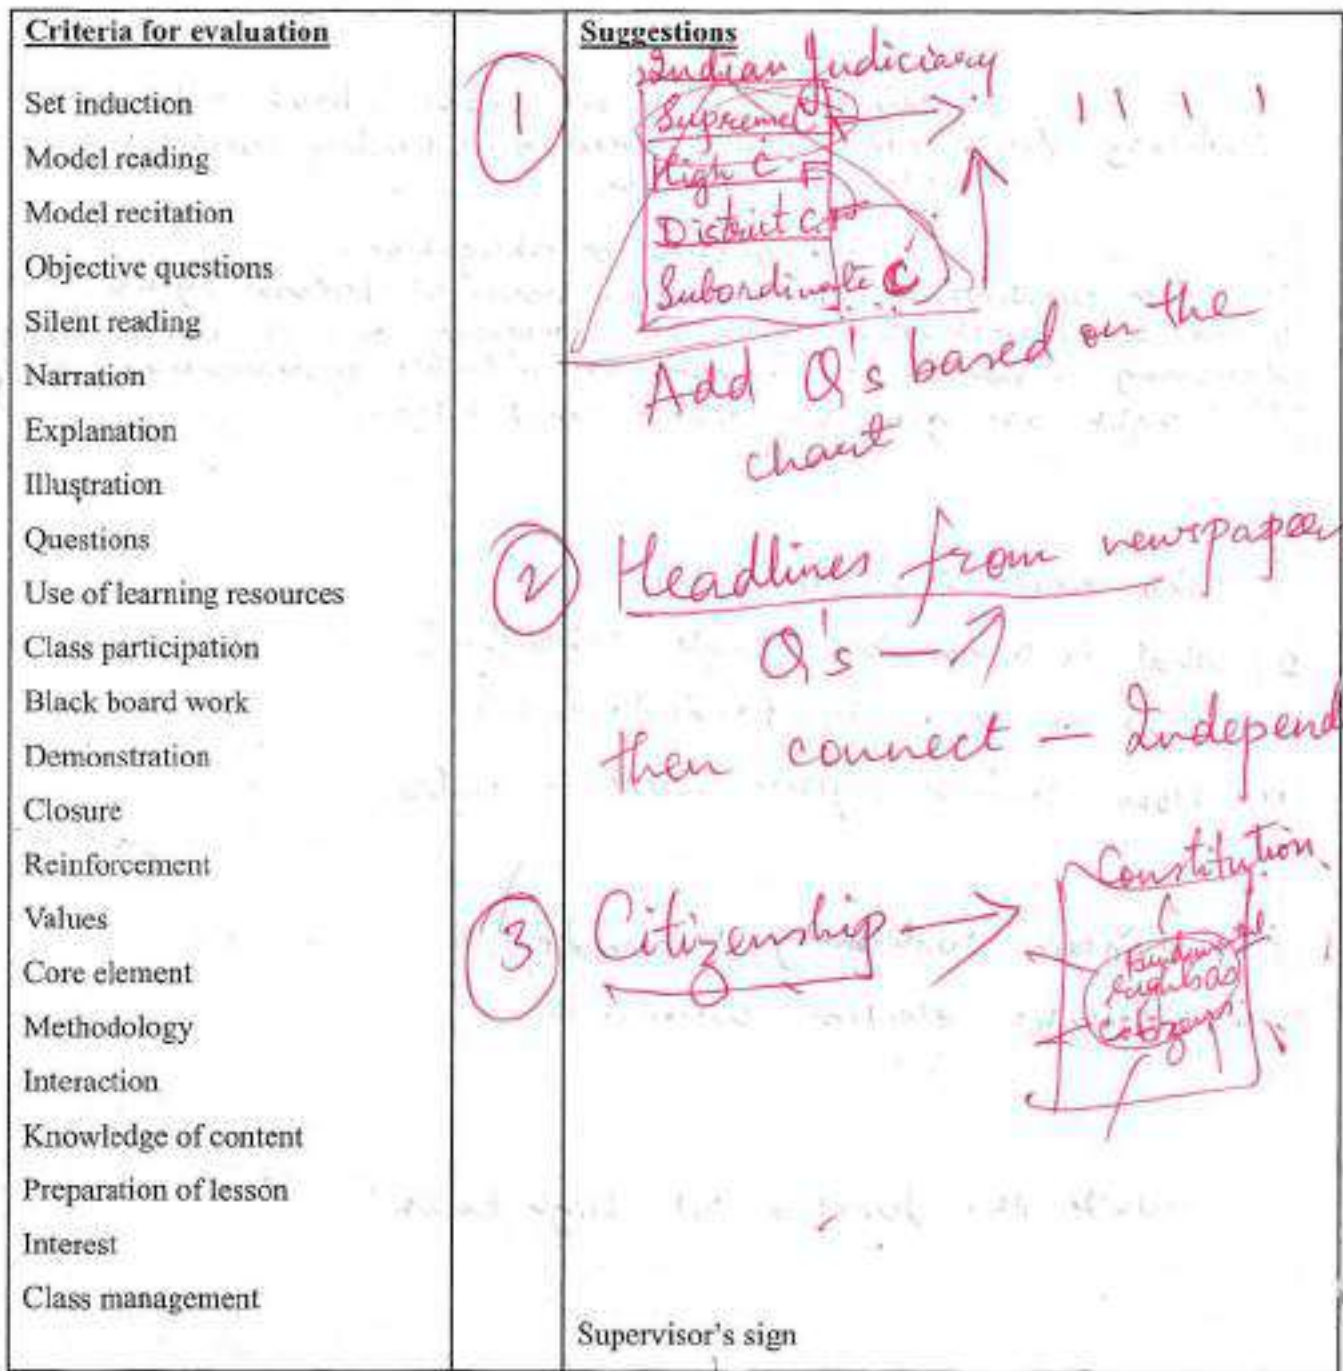 Criteria for evaluation
Set induction
Model reading
Model recitation
Objective questions
Silent reading
Narration
Explanation
Illustration
Questions
Use of learning resources
Class participation
Black board work
Demonstration
Closure
Reinforcement
Values
Core element
Methodology
Interaction
Knowledge of content
Preparation of lesson
Interest
Class management
Suggestions
1
Indian Judiciary
Supreme C
High C
District C
Subordinate C
Add Q's based on the
chart
2
Headlines from newspaper
Q's
then connect - Independ
3
Citizenship
Constitution
rights as
citizens
Supervisor's sign